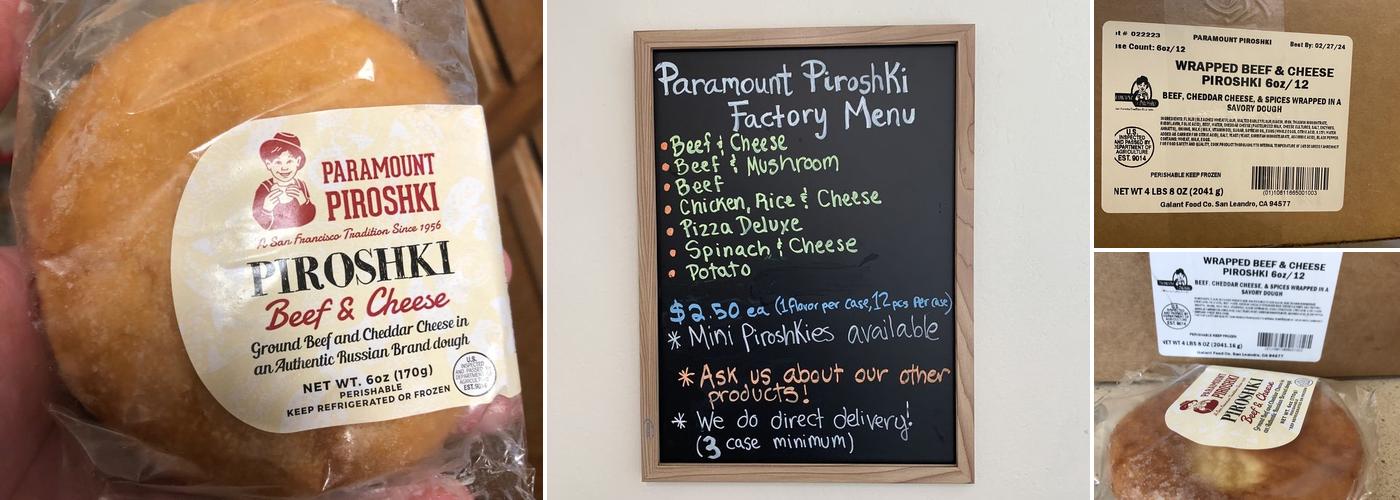 PARAMOUNT
PIROSHKI
A San Francisco Tradition Since 1956
PIROSHKI
Beef & Cheese
Ground Beef and Cheddar Cheese in
an Authentic Russian Brand dough
NET WT. 6oz (170g)
PERISHABLE
KEEP REFRIGERATED OR FROZEN
U.S.
INSPECTED
AND PASSED BY
DEPARTMENT OF
AGRICULTURE
EST. 9014
Paramount Piroshki
Factory Menu
Beef & Cheese
Beef & Mushroom
Beef
Chicken, Rice & Cheese
Pizza Deluxe
Spinach & Cheese
Potato
$2.50 ea (1 flavor per case, 12 pcs Per case)
* Mini Piroshkies available
* Ask us about our other
products!
* We do direct delivery!
(3 case minimum)
# 022223 PARAMOUNT PIROSHKI Best By: 02/27/24
Count: 6oz/12
WRAPPED BEEF & CHEESE
PIROSHKI 6oz/12
BEEF, CHEDDAR CHEESE, & SPICES WRAPPED IN A
SAVORY DOUGH
U.S.
INSPECTED
AND PASSED BY
DEPARTMENT OF
AGRICULTURE
EST. 9014
PERISHABLE KEEP FROZEN
NET WT 4 LBS 8 OZ (2041 g)
Galant Food Co. San Leandro, CA 94577
WRAPPED BEEF & CHEESE
PIROSHKI 6oz/12
BEEF, CHEDDAR CHEESE, & SPICES WRAPPED IN A
SAVORY DOUGH
PERISHABLE KEEP FROZEN
NET WT 4 LBS 8 OZ (2041.16 g)
Galant Food Co. San Leandro, CA 94577
PARAMOUNT
PIROSHKI
PIROSHKI
Beef & Cheese